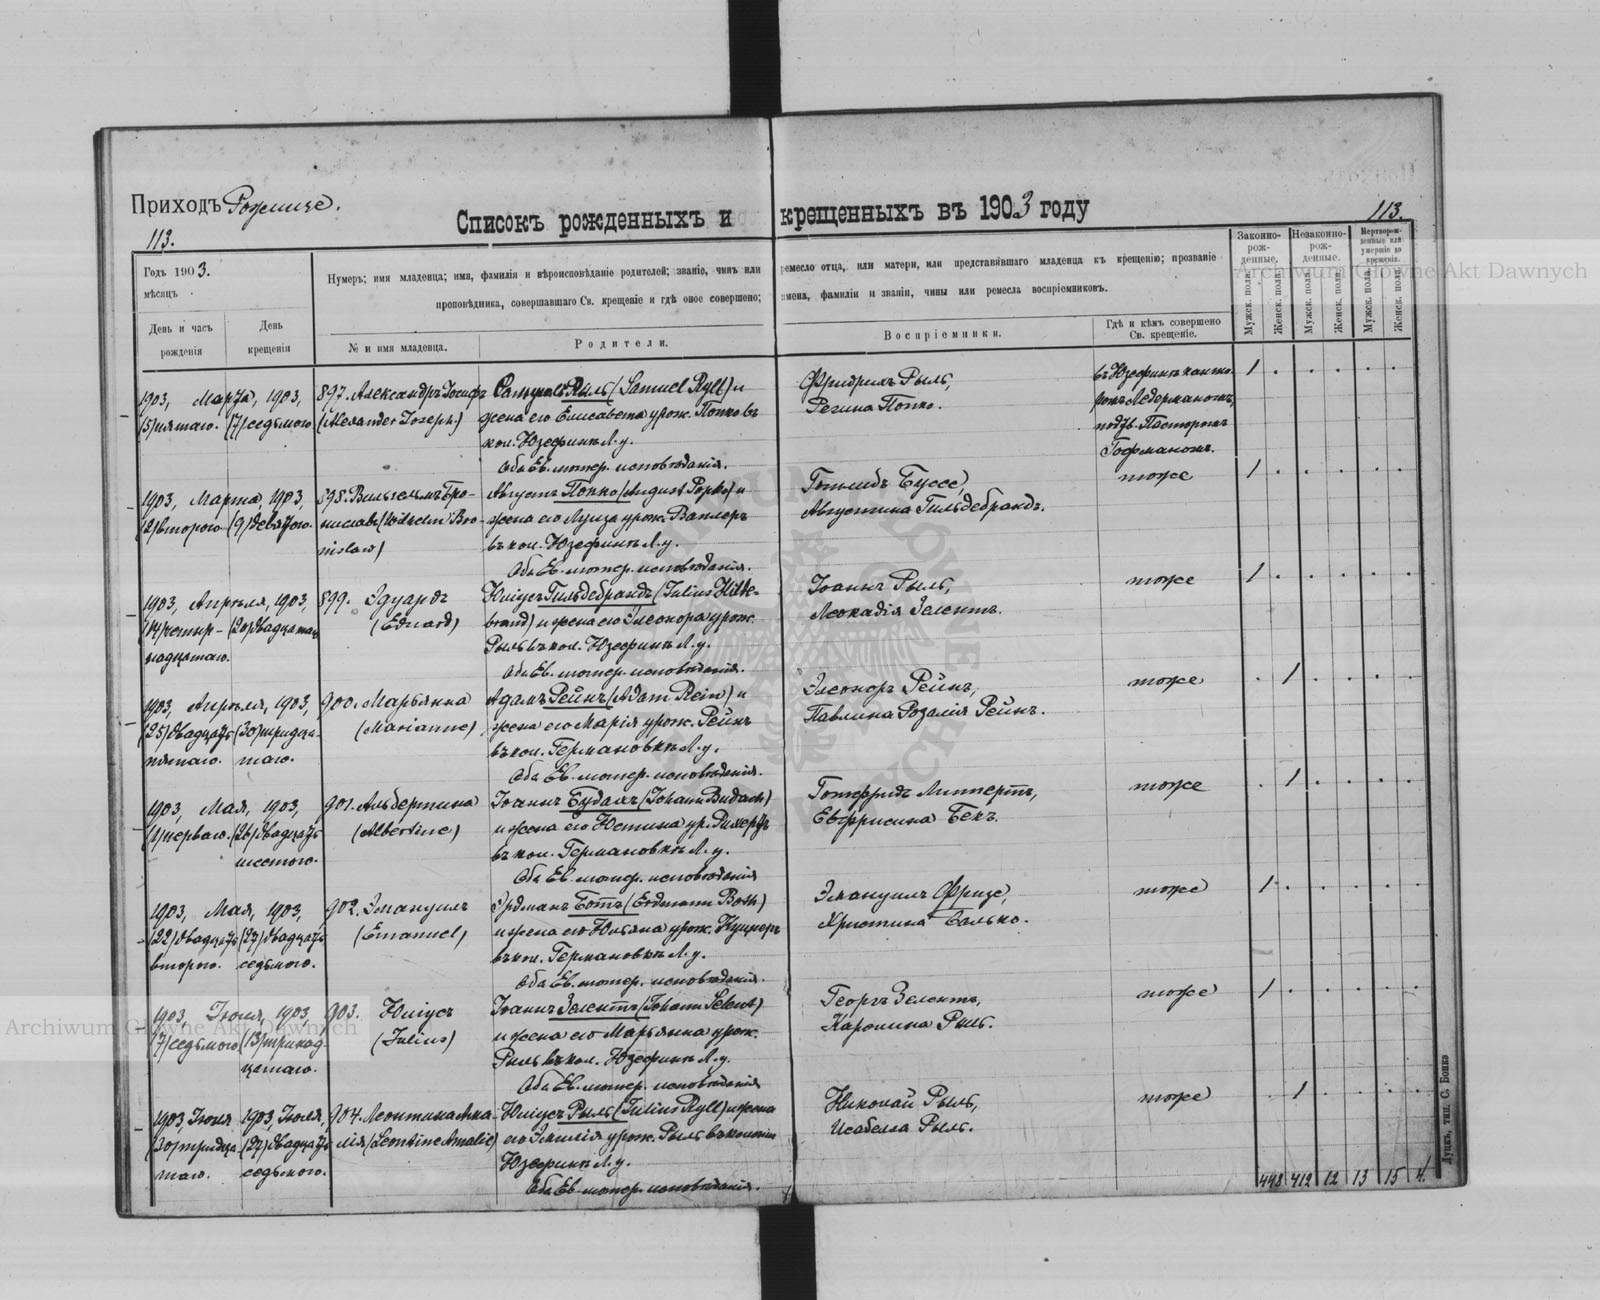 Приходъ Рожище.
Списокъ рожденныхъ и крещенныхъ въ 1903 году
113.
113.
Годъ 1903.
мѣсяцъ
День и часъ рожденія
День крещенія
Нумеръ; имя младенца; имя, фамилія и вѣроисповѣданіе родителей; званіе, чинъ или ремесло отца, или матери, или представившаго младенца къ крещенію; прозваніе
проповѣдника, совершавшаго Св. крещеніе и гдѣ оное совершено; имена, фамиліи и званія, чины или ремесла воспріемниковъ.
№ и имя младенца.
Родители.
Воспріемники.
Гдѣ и кѣмъ совершено Св. крещеніе.
Законно-рож-денные.
Незаконно-рож-денные.
Мертворож-денные или умершіе до крещенія.
Мужск. пола.
Женск. пола.
Мужск. пола.
Женск. пола.
Мужск. пола.
Женск. пола.
1903, Марта, 1903, 897. Александръ Іосифъ Самуилъ Рыль (Samuel Ryll) и
(5) пятаго. (7) седьмого (Alexander Joseph.) жена его Елисавета урож. Попко въ
кол. Юзефинъ Л. у.
Оба Ев. лютер. исповѣданія.
Фридрихъ Рыль,
Регина Попко.
въ Юзефинѣ канто-
ромъ Ледерманомъ,
подтв. Пасторомъ
Гофманомъ.
1
1903, Марта, 1903, 898. Вильгельмъ Бро- Августъ Попко (August Popko) и
(2) второго (9) девятого. ниславъ (Wilhelm Bro- жена его Луиза урож. Ваплеръ
nislaw) въ кол. Юзефинъ Л. у.
Оба Ев. лютер. исповѣданія.
Готлибъ Буссе,
Августина Гильдебрандъ.
тоже
1
1903, Апрѣля, 1903, 899. Эдуардъ Юліусъ Гильдебрандъ (Julius Hilde-
(14) четыр- (20) двадцатаго (Eduard) brand) и жена его Элеонора урож.
надцатаго. Рыль въ кол. Юзефинъ Л. у.
Оба Ев. лютер. исповѣданія.
Іоаннъ Рыль,
Леокадія Зелентъ.
тоже
1
1903, Апрѣля, 1903, 900. Марьянна Адамъ Рейнъ (Adam Rein) и
(25) двадцать (30) тридца- (Marianne) жена его Марія урож. Рейнъ
пятаго. таго. въ кол. Германовкѣ Л. у.
Оба Ев. лютер. исповѣданія.
Элеонора Рейнъ,
Павлина Розалія Рейнъ.
тоже
1
1903, Мая, 1903, 901. Альбертина Іоаннъ Будахъ (Johann Budach)
(1) перваго. (26) двадцать (Albertine) и жена его Юстина ур.
шестого. въ кол. Германовкѣ Л. у.
Оба Ев. лютер. исповѣданія
Готфридъ Липпертъ,
Евфрисина Бекъ.
тоже
1
1903, Мая, 1903, 902. Эмануилъ Эрдманъ Ботъ (Erdmann Both)
(22) двадцать (27) двадцать (Emanuel) и жена его Юльяна урож.
второго. седьмого. въ кол. Германовкѣ Л. у.
Оба Ев. лютер. исповѣданія.
Эмануилъ Фризе,
Христина Салько.
тоже
1
1903, Іюля, 1903, 903. Юліусъ Іоаннъ Зелентъ (Johann Selent)
(7) седьмого (13) тринад- (Julius) и жена его Марьянна урож.
цатаго. Рыль въ кол. Юзефинъ Л. у.
Оба Ев. лютер. исповѣданія
Георгъ Зелентъ,
Каролина Рыль.
тоже
1
1903, Іюня 1903, Іюля, 904. Леонтина Ама- Юліусъ Рыль (Julius Ryll) и жена
(30) тридца- (27) двадцать лія (Leontine Amalie) его Эмилія урож. Рыль въ колоніи
таго. седьмого. Юзефинъ Л. у.
Оба Ев. лютер. исповѣданія.
Николай Рыль,
Исабелла Рыль.
тоже
1
448 412 12 13 15 4.
Луцкъ, тип. С. Бонка
Archiwum Główne Akt Dawnych
Archiwum Główne Akt Dawnych